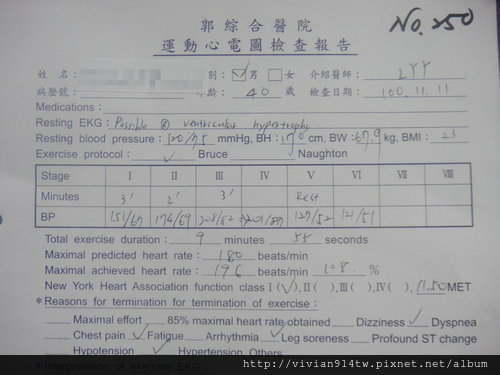 郭綜合醫院
No. 250
運動心電圖檢查報告
姓名: 別: ☑男 □女 介紹醫師:
病歷號: 齡: 40 歲 檢查日期: 100.11.11
Medications:
Resting EKG: Possible ventricular hypertrophy
Resting blood pressure: 120/75 mmHg, BH: 170 cm, BW: 67.9 kg, BMI: 23
Exercise protocol: ✓ Bruce Naughton
Stage I II III IV V VI VII VIII
Minutes 3' 3' 3' Rest
BP 151/67 174/69 208/82 127/52 121/51
Total exercise duration: 9 minutes 55 seconds
Maximal predicted heart rate: 180 beats/min
Maximal achieved heart rate: 196 beats/min 108 %
New York Heart Association function class I (✓), II ( ), III ( ), IV( ), 11.50 MET
*Reasons for termination for termination of exercise:
Maximal effort 85% maximal heart rate obtained Dizziness ✓ Dyspnea
Chest pain ✓ Fatigue Arrhythmia ✓ Leg soreness Profound ST change
Hypotension ✓ Hypertension Others
*Interpretation of exercise EKG:
http://vivian914tw.pixnet.net/album